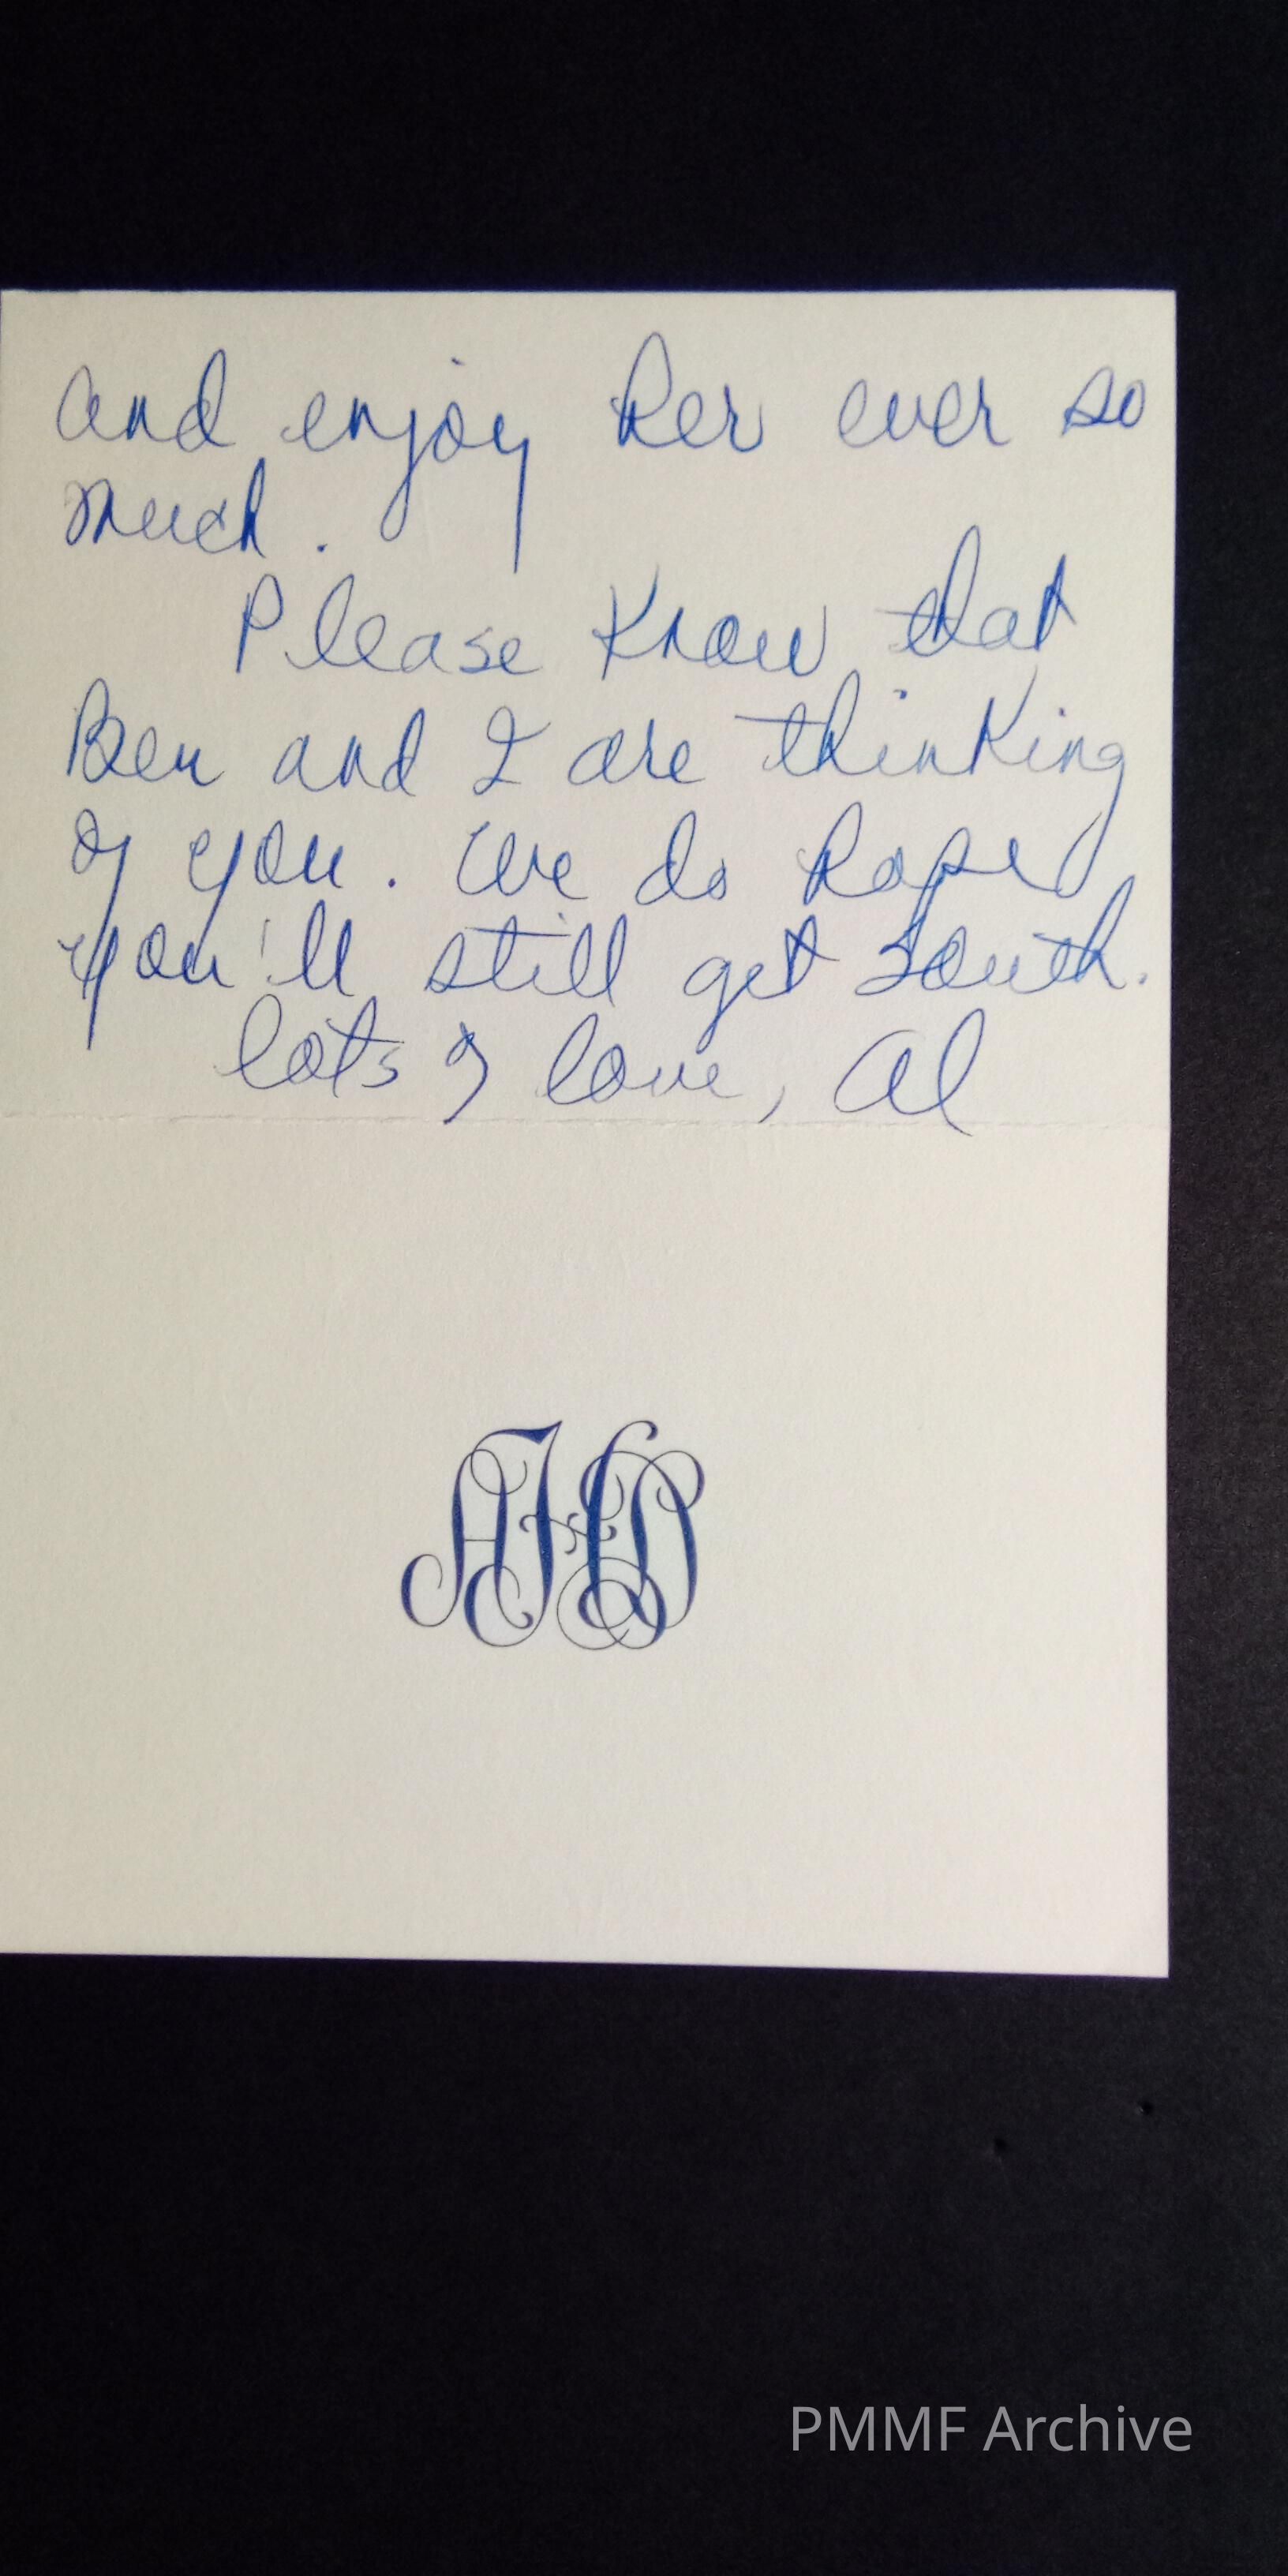 and enjoy her ever so
much.
Please know that
Ben and I are thinking
of you. We do hope
you'll still get South.
lots of love, Al
PMMF Archive